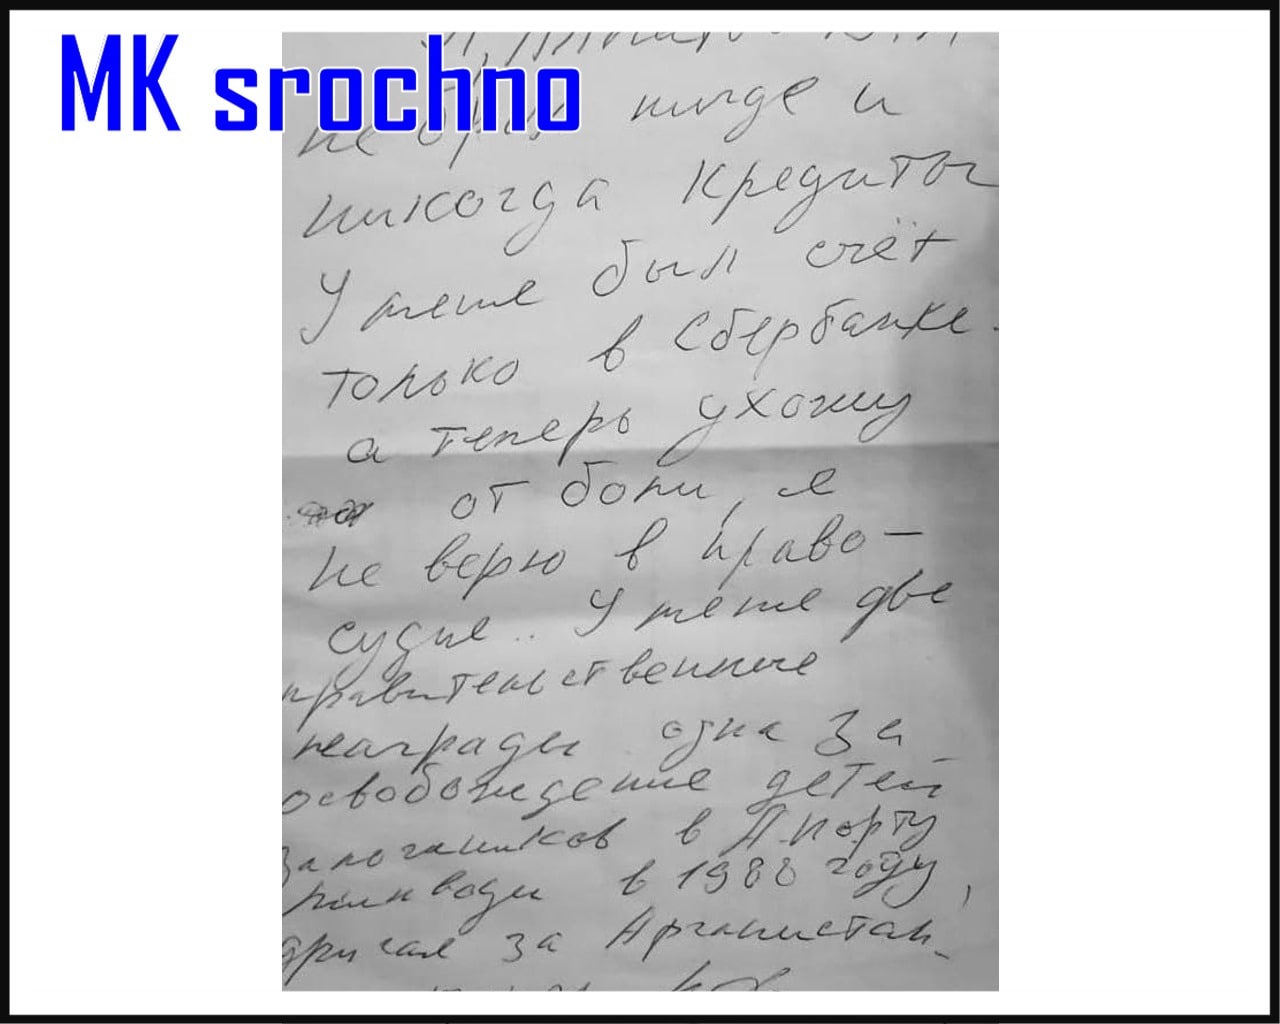 MK srochno
не брал нигде и
никогда кредиты
У меня был счёт
только в Сбербанке.
а теперь ухожу
от боли, я
не верю в право-
судие.. У меня две
правительственные
награды одна за
освобождение детей
заложников в А.порту
Минводы в 1988 году,
другая за Афганистан.